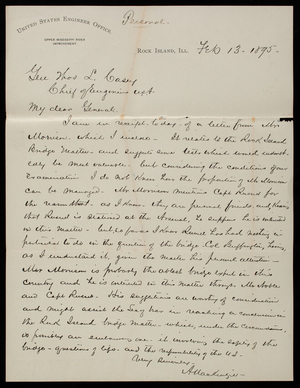 UNITED STATES ENGINEER OFFICE,
UPPER MISSISSIPPI RIVER
IMPROVEMENT
Personal.
ROCK ISLAND, ILL. Feb 13-1895-
Gen Thos L. Casey
Chief of Engineers USA
My dear General:
I am in receipt today of a letter from Mr.
Morison which I enclose. It relates to the Rock Island
Bridge Matter and suggests some tests which would
be most valuable, but considering the conditions
Examination I do not know how the proposition of Mr Morison
can be managed. Mr Morison mentions Capt Ruud for
the as I know, they are personal friends and, knowing
that is stationed at the Arsenal, he supposes he is interested
in this matter but so far as I know has had nothing in
particular to do in the question of the bridge. Col. Buffington, I know,
as I understand it, gives the matter his personal attention
Mr Morison is probably the ablest bridge expert in this
country and he is interested in this matter through Mr Noble
and Capt His suggestions are worthy of consideration
and might assist the Sec of War in reaching a conclusion in
the Rock Island bridge matter which, under the circumstances,
is possibly an one. it involves the safety of the
bridge questions of life and the responsibility of the U.S.
Very Sincerely
A Mackenzie